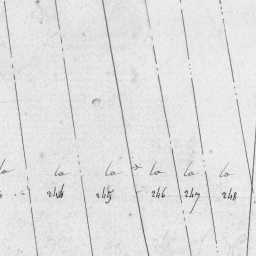 lo lo lo lo lo lo
244 245 246 247 248